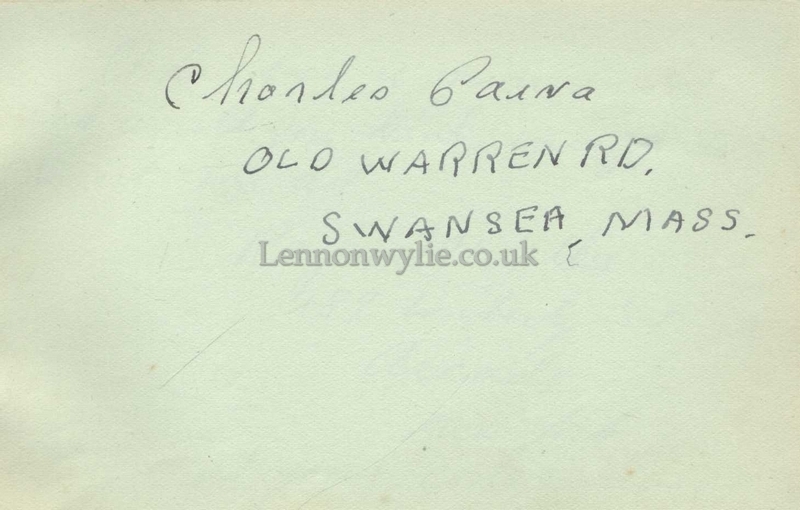 Charles Paiva
OLD WARREN RD.
SWANSEA, MASS.
Lennonwylie.co.uk